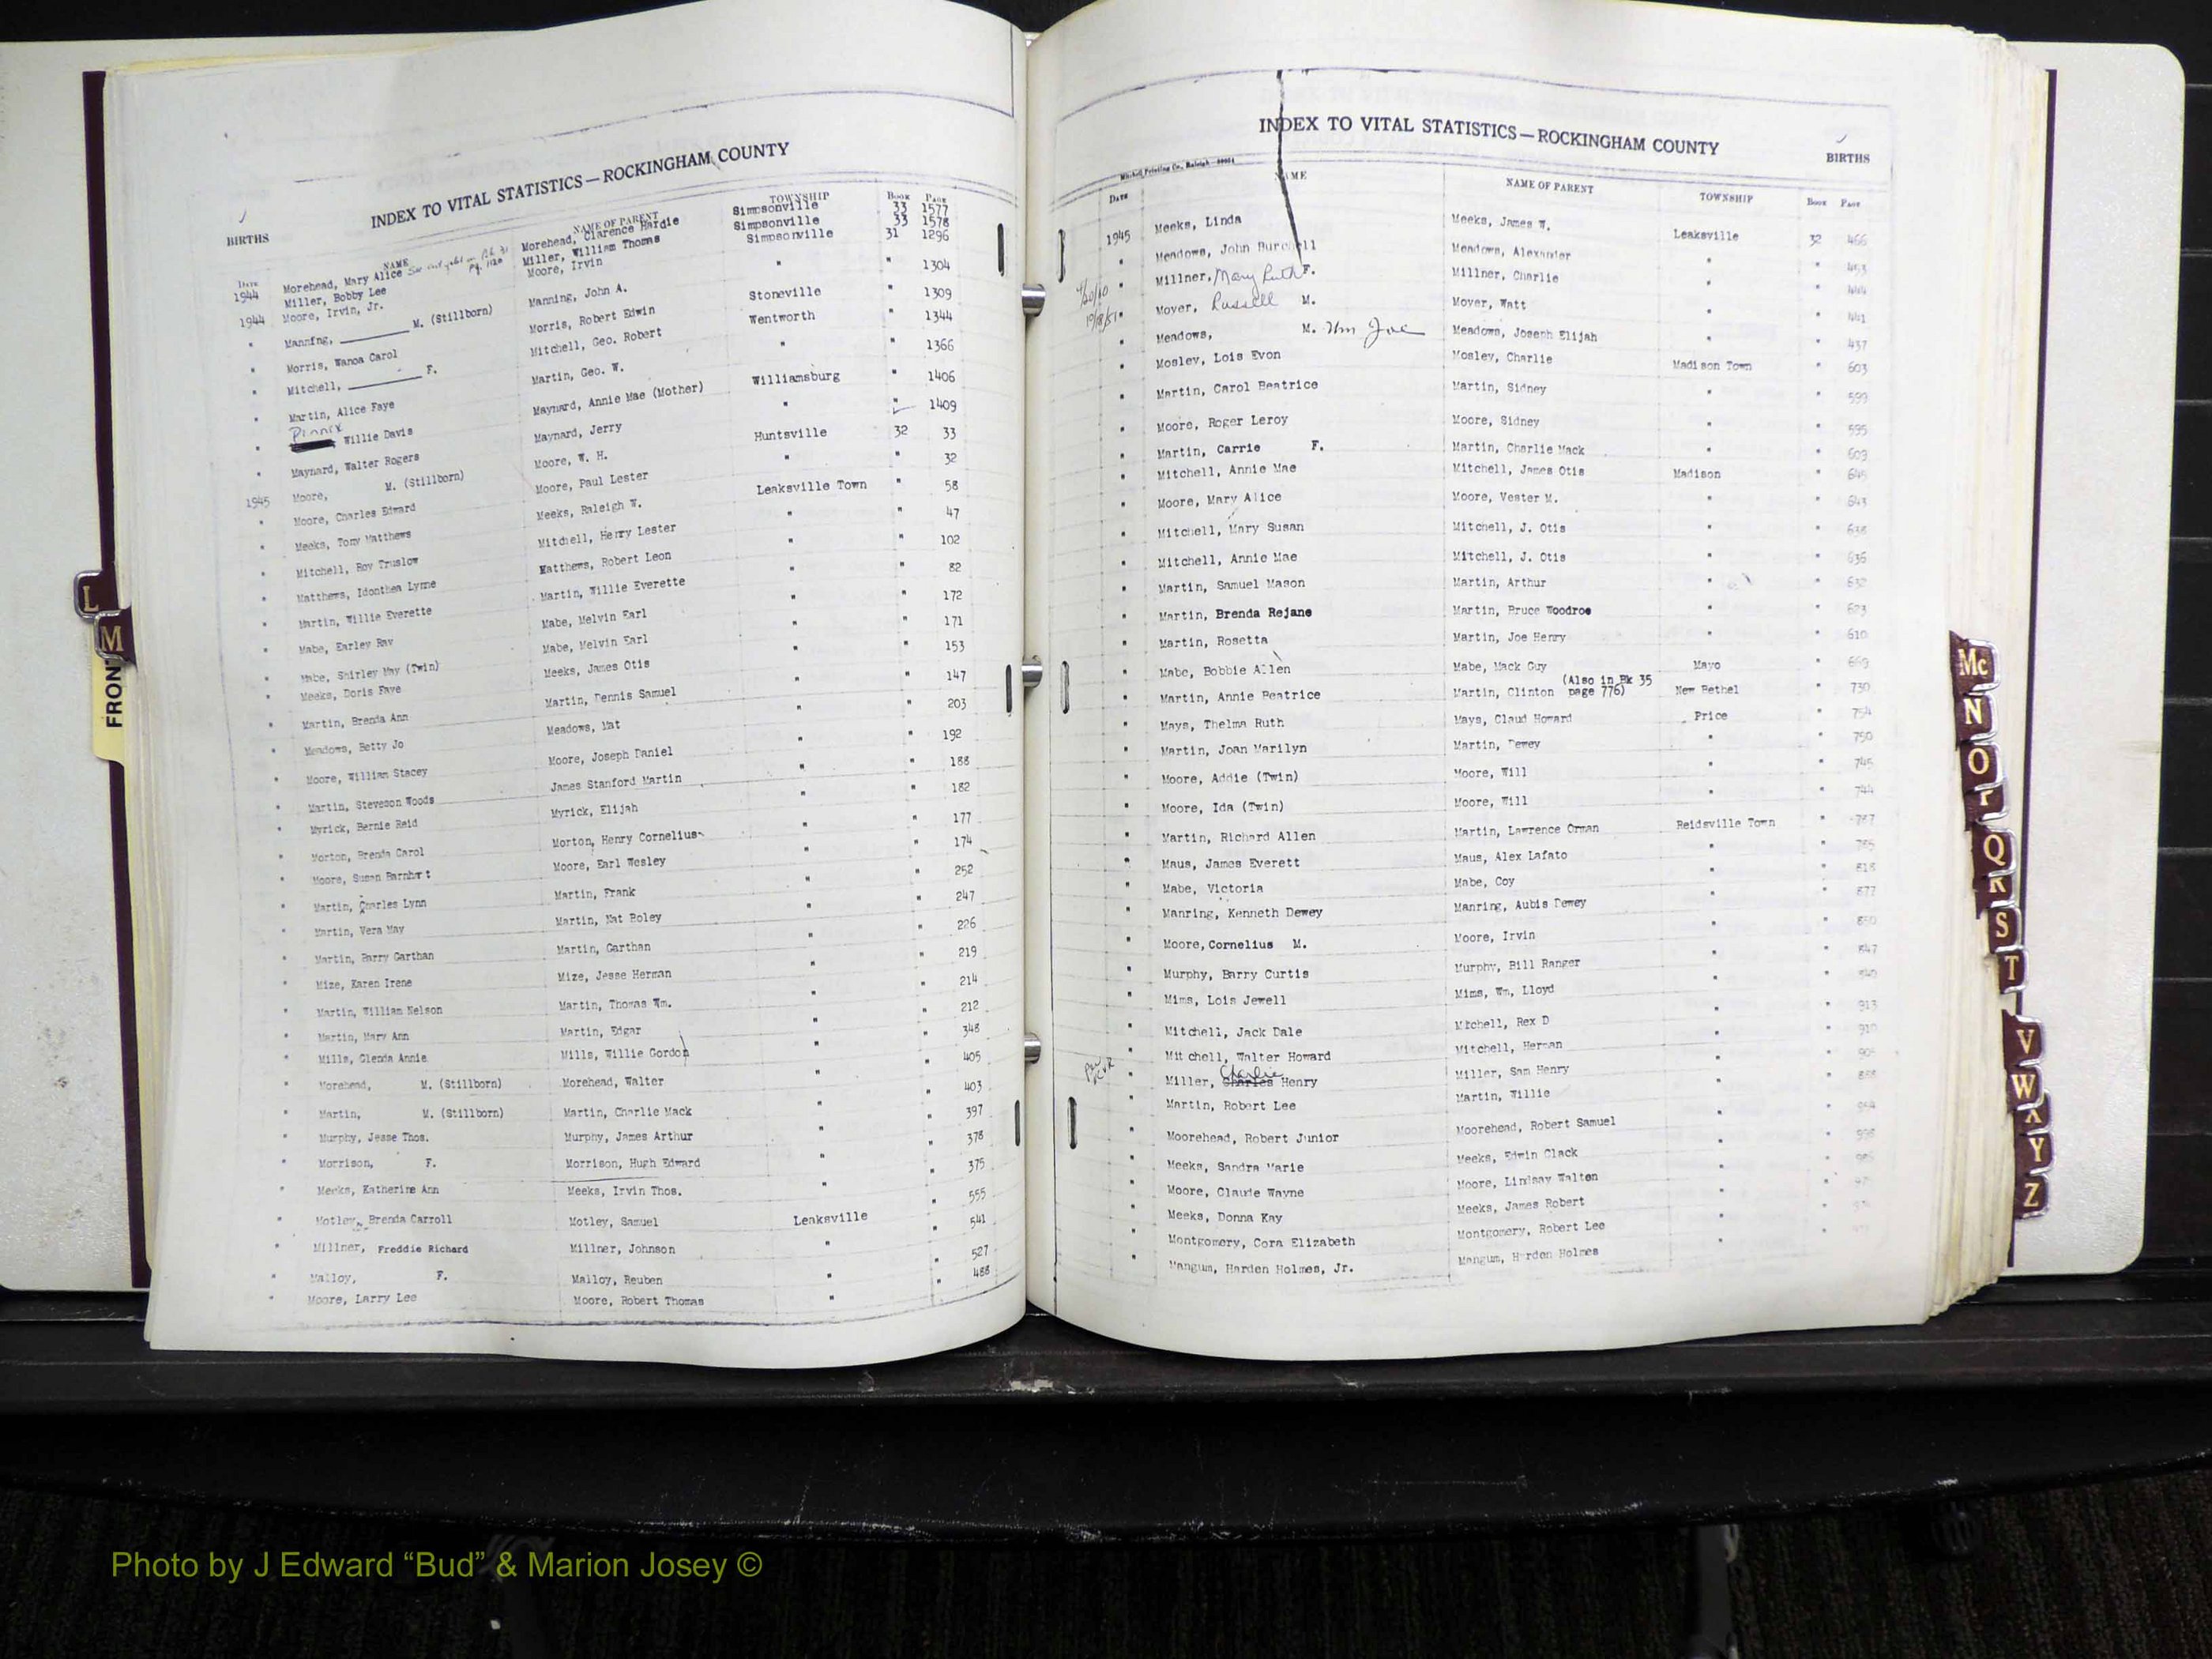 INDEX TO VITAL STATISTICS—ROCKINGHAM COUNTY
BIRTHS
DATE NAME NAME OF PARENT TOWNSHIP BOOK PAGE
1944 Morehead, Mary Alice Morehead, Clarence Hardie Simpsonville 33 1577
Miller, Bobby Lee Miller, William Thomas Simpsonville 33 1578
1944 Moore, Irvin, Jr. Moore, Irvin Simpsonville 31 1296
" Manning, M. (Stillborn) Manning, John A. " " 1304
" Morris, Wanoa Carol Morris, Robert Edwin Stoneville " 1309
" Mitchell, F. Mitchell, Geo. Robert Wentworth " 1344
" Martin, Alice Faye Martin, Geo. W. " " 1366
" Willie Davis Maynard, Annie Mae (Mother) Williamsburg " 1406
" Maynard, Walter Rogers Maynard, Jerry " " 1409
1945 Moore, M. (Stillborn) Moore, W. H. Huntsville 32 33
" Moore, Charles Edward Moore, Paul Lester " " 32
" Meeks, Tony Matthews Meeks, Raleigh W. Leaksville Town " 58
" Mitchell, Roy Truslow Mitchell, Henry Lester " " 47
" Matthews, Idonthea Lynne Matthews, Robert Leon " " 102
" Martin, Willie Everette Martin, Willie Everette " " 82
" Mabe, Earley Ray Mabe, Melvin Earl " " 172
" Mabe, Shirley May (Twin) Mabe, Melvin Earl " " 171
Meeks, Doris Faye Meeks, James Otis " " 153
" Martin, Brenda Ann Martin, Dennis Samuel " " 147
" Meadows, Betty Jo Meadows, Mat " " 203
" Moore, William Stacey Moore, Joseph Daniel " " 192
" Martin, Steveson Woods James Stanford Martin " " 188
" Myrick, Bernie Reid Myrick, Elijah " " 182
" Morton, Brenda Carol Morton, Henry Cornelius " " 177
" Moore, Susan Barnhart Moore, Earl Wesley " " 174
" Martin, Charles Lynn Martin, Frank " " 252
" Martin, Vera May Martin, Nat Boley " " 247
" Martin, Barry Garthan Martin, Garthan " " 226
" Mize, Karen Irene Mize, Jesse Herman " " 219
" Martin, William Nelson Martin, Thomas Wm. " " 214
" Martin, Mary Ann Martin, Edgar " " 212
" Mills, Glenda Annie Mills, Willie Gordon " " 348
" Morehead, M. (Stillborn) Morehead, Walter " " 405
" Martin, M. (Stillborn) Martin, Charlie Mack " " 403
" Murphy, Jesse Thos. Murphy, James Arthur " " 397
" Morrison, F. Morrison, Hugh Edward " " 378
" Meeks, Katherine Ann Meeks, Irvin Thos. " " 375
" Motley, Brenda Carroll Motley, Samuel Leaksville " 555
" Millner, Freddie Richard Millner, Johnson " " 541
" Malloy, F. Malloy, Reuben " " 527
" Moore, Larry Lee Moore, Robert Thomas " " 488
L
M
FRONT
INDEX TO VITAL STATISTICS—ROCKINGHAM COUNTY
BIRTHS
Mitchell Printing Co., Raleigh
DATE NAME NAME OF PARENT TOWNSHIP BOOK PAGE
1945 Meeks, Linda Meeks, James W. Leaksville 32 466
" Meadows, John Burchell Meadows, Alexander " " 453
" Millner, Mary Ruth F. Millner, Charlie " " 444
" Moyer, Russell M. Moyer, Watt " " 441
" Meadows, M. Wm Joe Meadows, Joseph Elijah " " 437
" Mosley, Lois Evon Mosley, Charlie Madison Town " 603
" Martin, Carol Beatrice Martin, Sidney " " 599
" Moore, Roger Leroy Moore, Sidney " " 595
" Martin, Carrie F. Martin, Charlie Mack " " 609
" Mitchell, Annie Mae Mitchell, James Otis Madison " 645
" Moore, Mary Alice Moore, Vester M. " " 643
" Mitchell, Mary Susan Mitchell, J. Otis " " 638
" Mitchell, Annie Mae Mitchell, J. Otis " " 636
" Martin, Samuel Mason Martin, Arthur " " 632
" Martin, Brenda Rejane Martin, Bruce Woodroe " " 623
" Martin, Rosetta Martin, Joe Henry " " 610
" Mabe, Bobbie Allen Mabe, Mack Guy Mayo " 669
" Martin, Annie Beatrice Martin, Clinton (Also in Bk 35 page 776) New Bethel " 730
" Mays, Thelma Ruth Mays, Claud Howard Price " 754
" Martin, Joan Marilyn Martin, Dewey " " 750
" Moore, Addie (Twin) Moore, Will " " 745
" Moore, Ida (Twin) Moore, Will " " 744
" Martin, Richard Allen Martin, Lawrence Orman Reidsville Town " 787
" Maus, James Everett Maus, Alex Lafato " " 785
" Mabe, Victoria Mabe, Coy " " 818
" Manring, Kenneth Dewey Manring, Aubis Dewey " " 877
" Moore, Cornelius M. Moore, Irvin " "
" Murphy, Barry Curtis Murphy, Bill Ranger " " 847
" Mims, Lois Jewell Mims, Wm. Lloyd " " 840
" Mitchell, Jack Dale Mitchell, Rex D " " 913
" Mitchell, Walter Howard Mitchell, Herman " " 910
" Miller, Charles Charlie Henry Miller, Sam Henry " "
" Martin, Robert Lee Martin, Willie " "
" Moorehead, Robert Junior Moorehead, Robert Samuel " "
" Meeks, Sandra Marie Meeks, Edwin Clack " "
" Moore, Claude Wayne Moore, Lindsay Walton " "
" Meeks, Donna Kay Meeks, James Robert " "
" Montgomery, Cora Elizabeth Montgomery, Robert Lee " "
" Mangum, Harden Holmes, Jr. Mangum, Harden Holmes " "
Mc
N
O
Q
R
S
T
V
W
X
Y
Z
Photo by J Edward “Bud” & Marion Josey ©